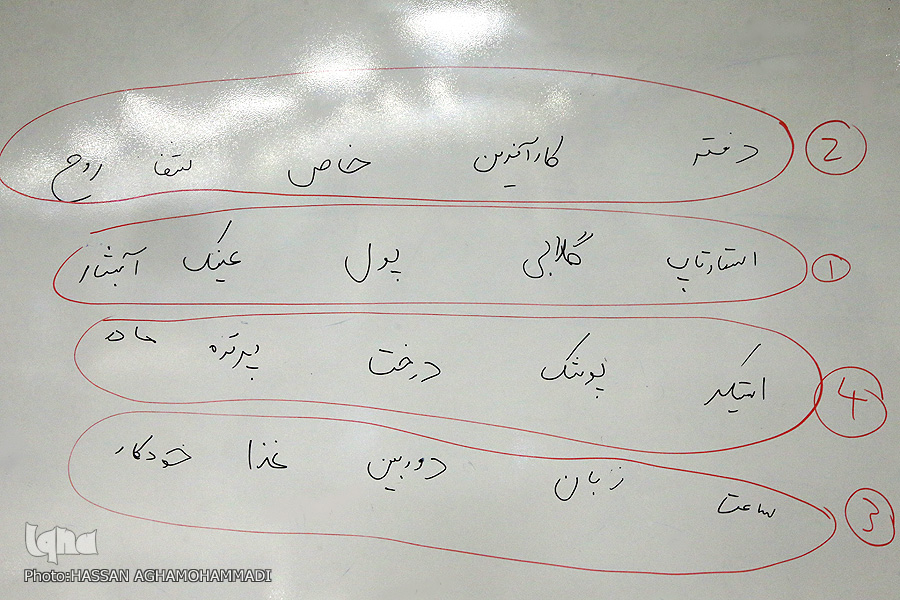 دفتر کارآفرین خاص لتفا روح 2
استارتاپ گلابی پول عینک آبشار 1
استیکر پوشک درخت پرنده ماه 4
ساعت زبان دوربین غذا خودکار 3
iqna
Photo:HASSAN AGHAMOHAMMADI